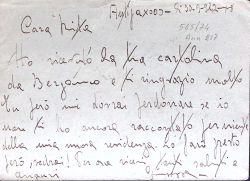 Cara Rita
Ho ricevuto la tua cartolina
da Bergamo e ti ringrazio molto
Tu però mi dovrai perdonare se io
non ti ho ancora raccontato per niente
della mia nuova residenza. Lo farò presto
però vedrai! Per ora ricevi tanti saluti e
auguri